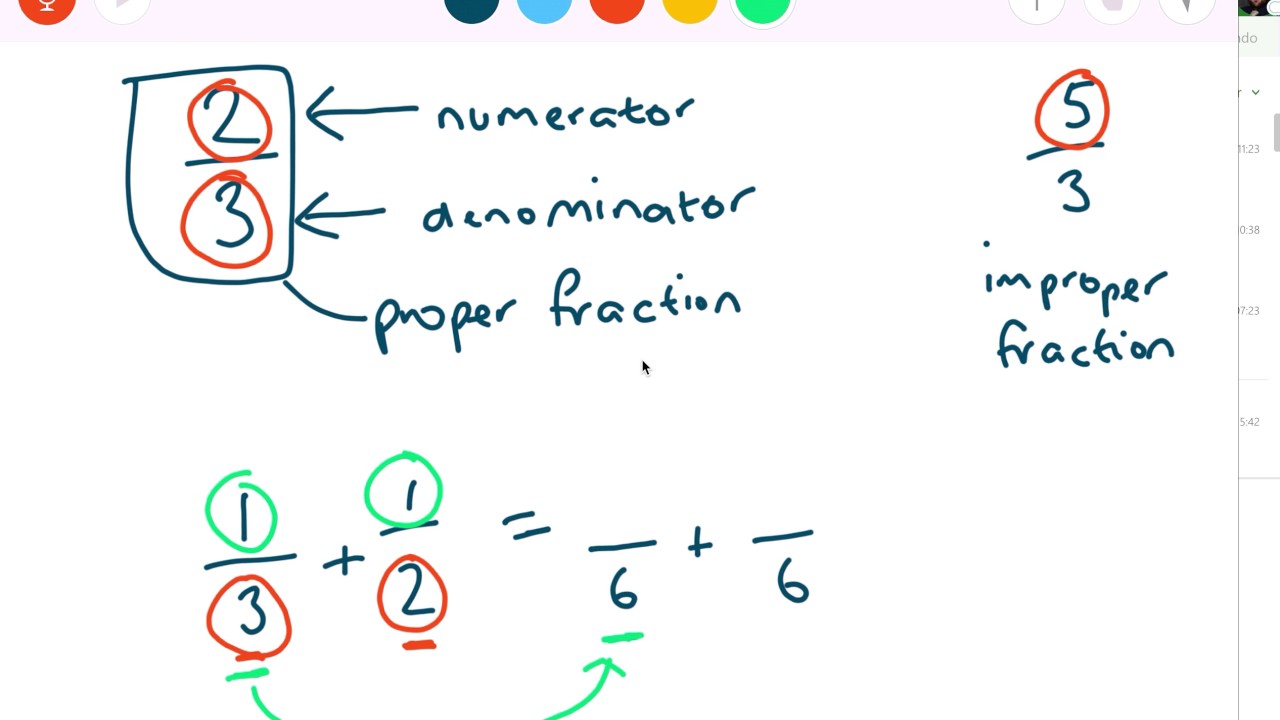 2 ← numerator
3 ← denominator
proper fraction
5
3
improper
fraction
1/3 + 1/2 = /6 + /6
ndo
r
11:23
0:38
07:23
5:42